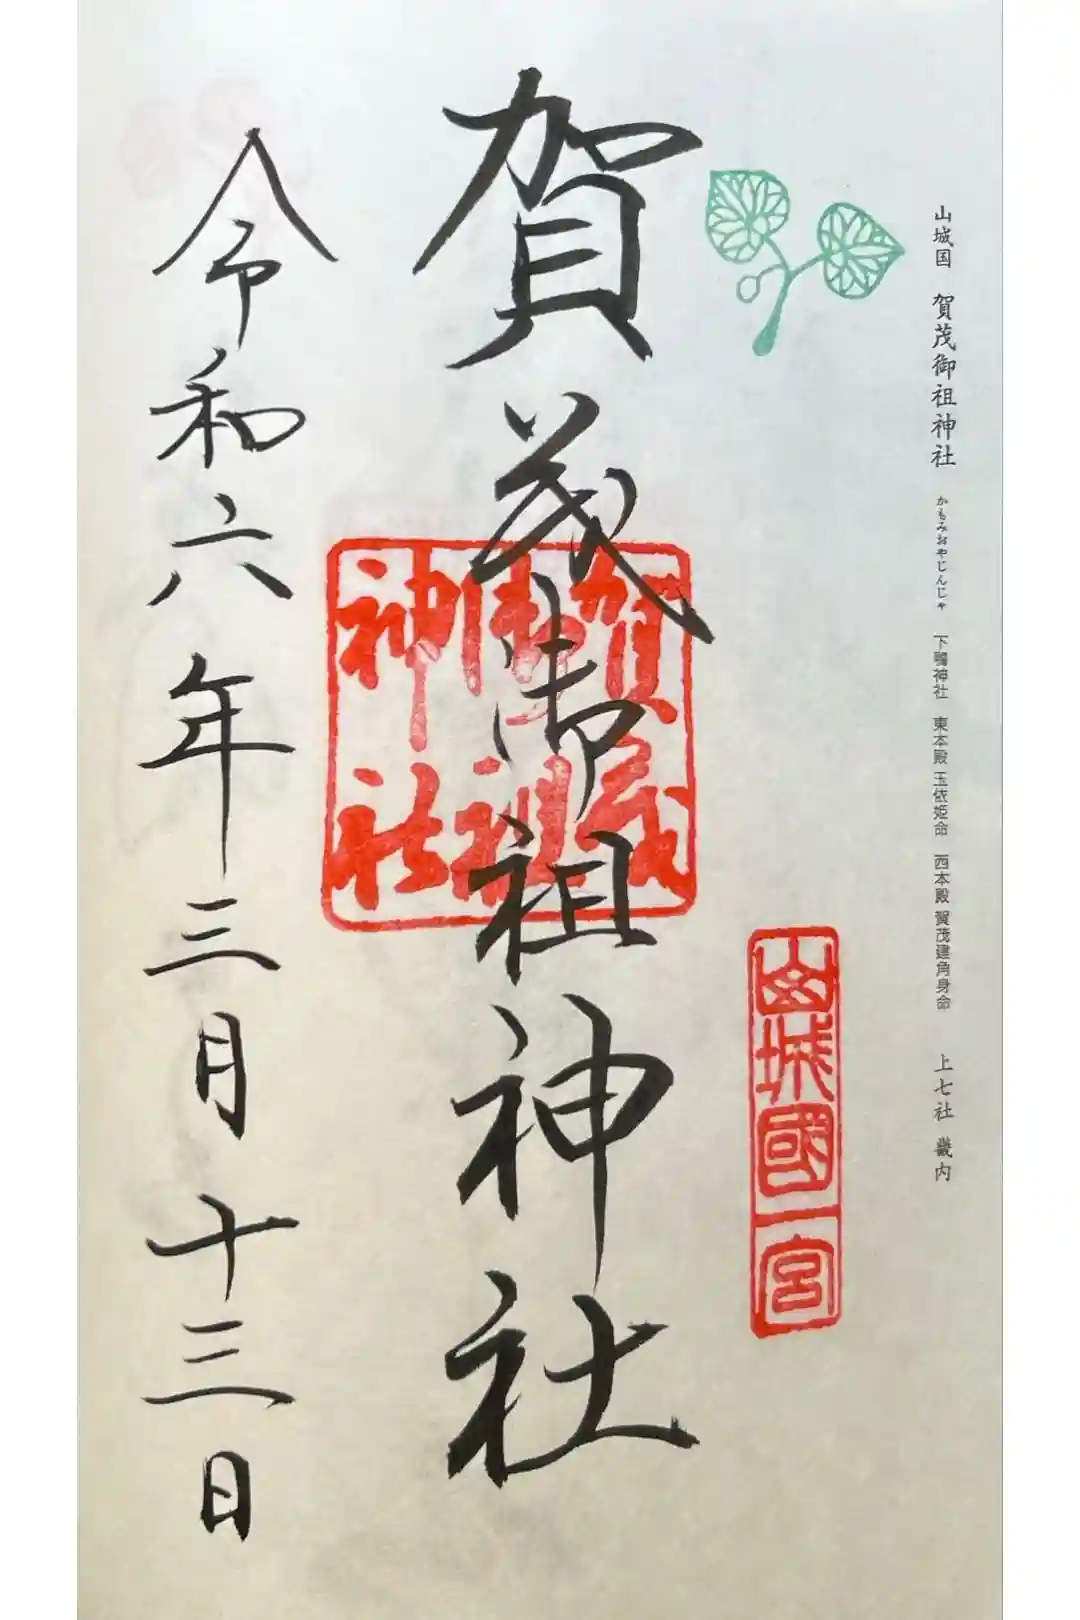 山城国 賀茂御祖神社 かもみおやじんじゃ 下鴨神社 東本殿 玉依姫命 西本殿 賀茂建角身命 上七社 畿内
山城國一宮
賀茂御祖神社
賀茂
御祖
神社
令和六年三月十三日